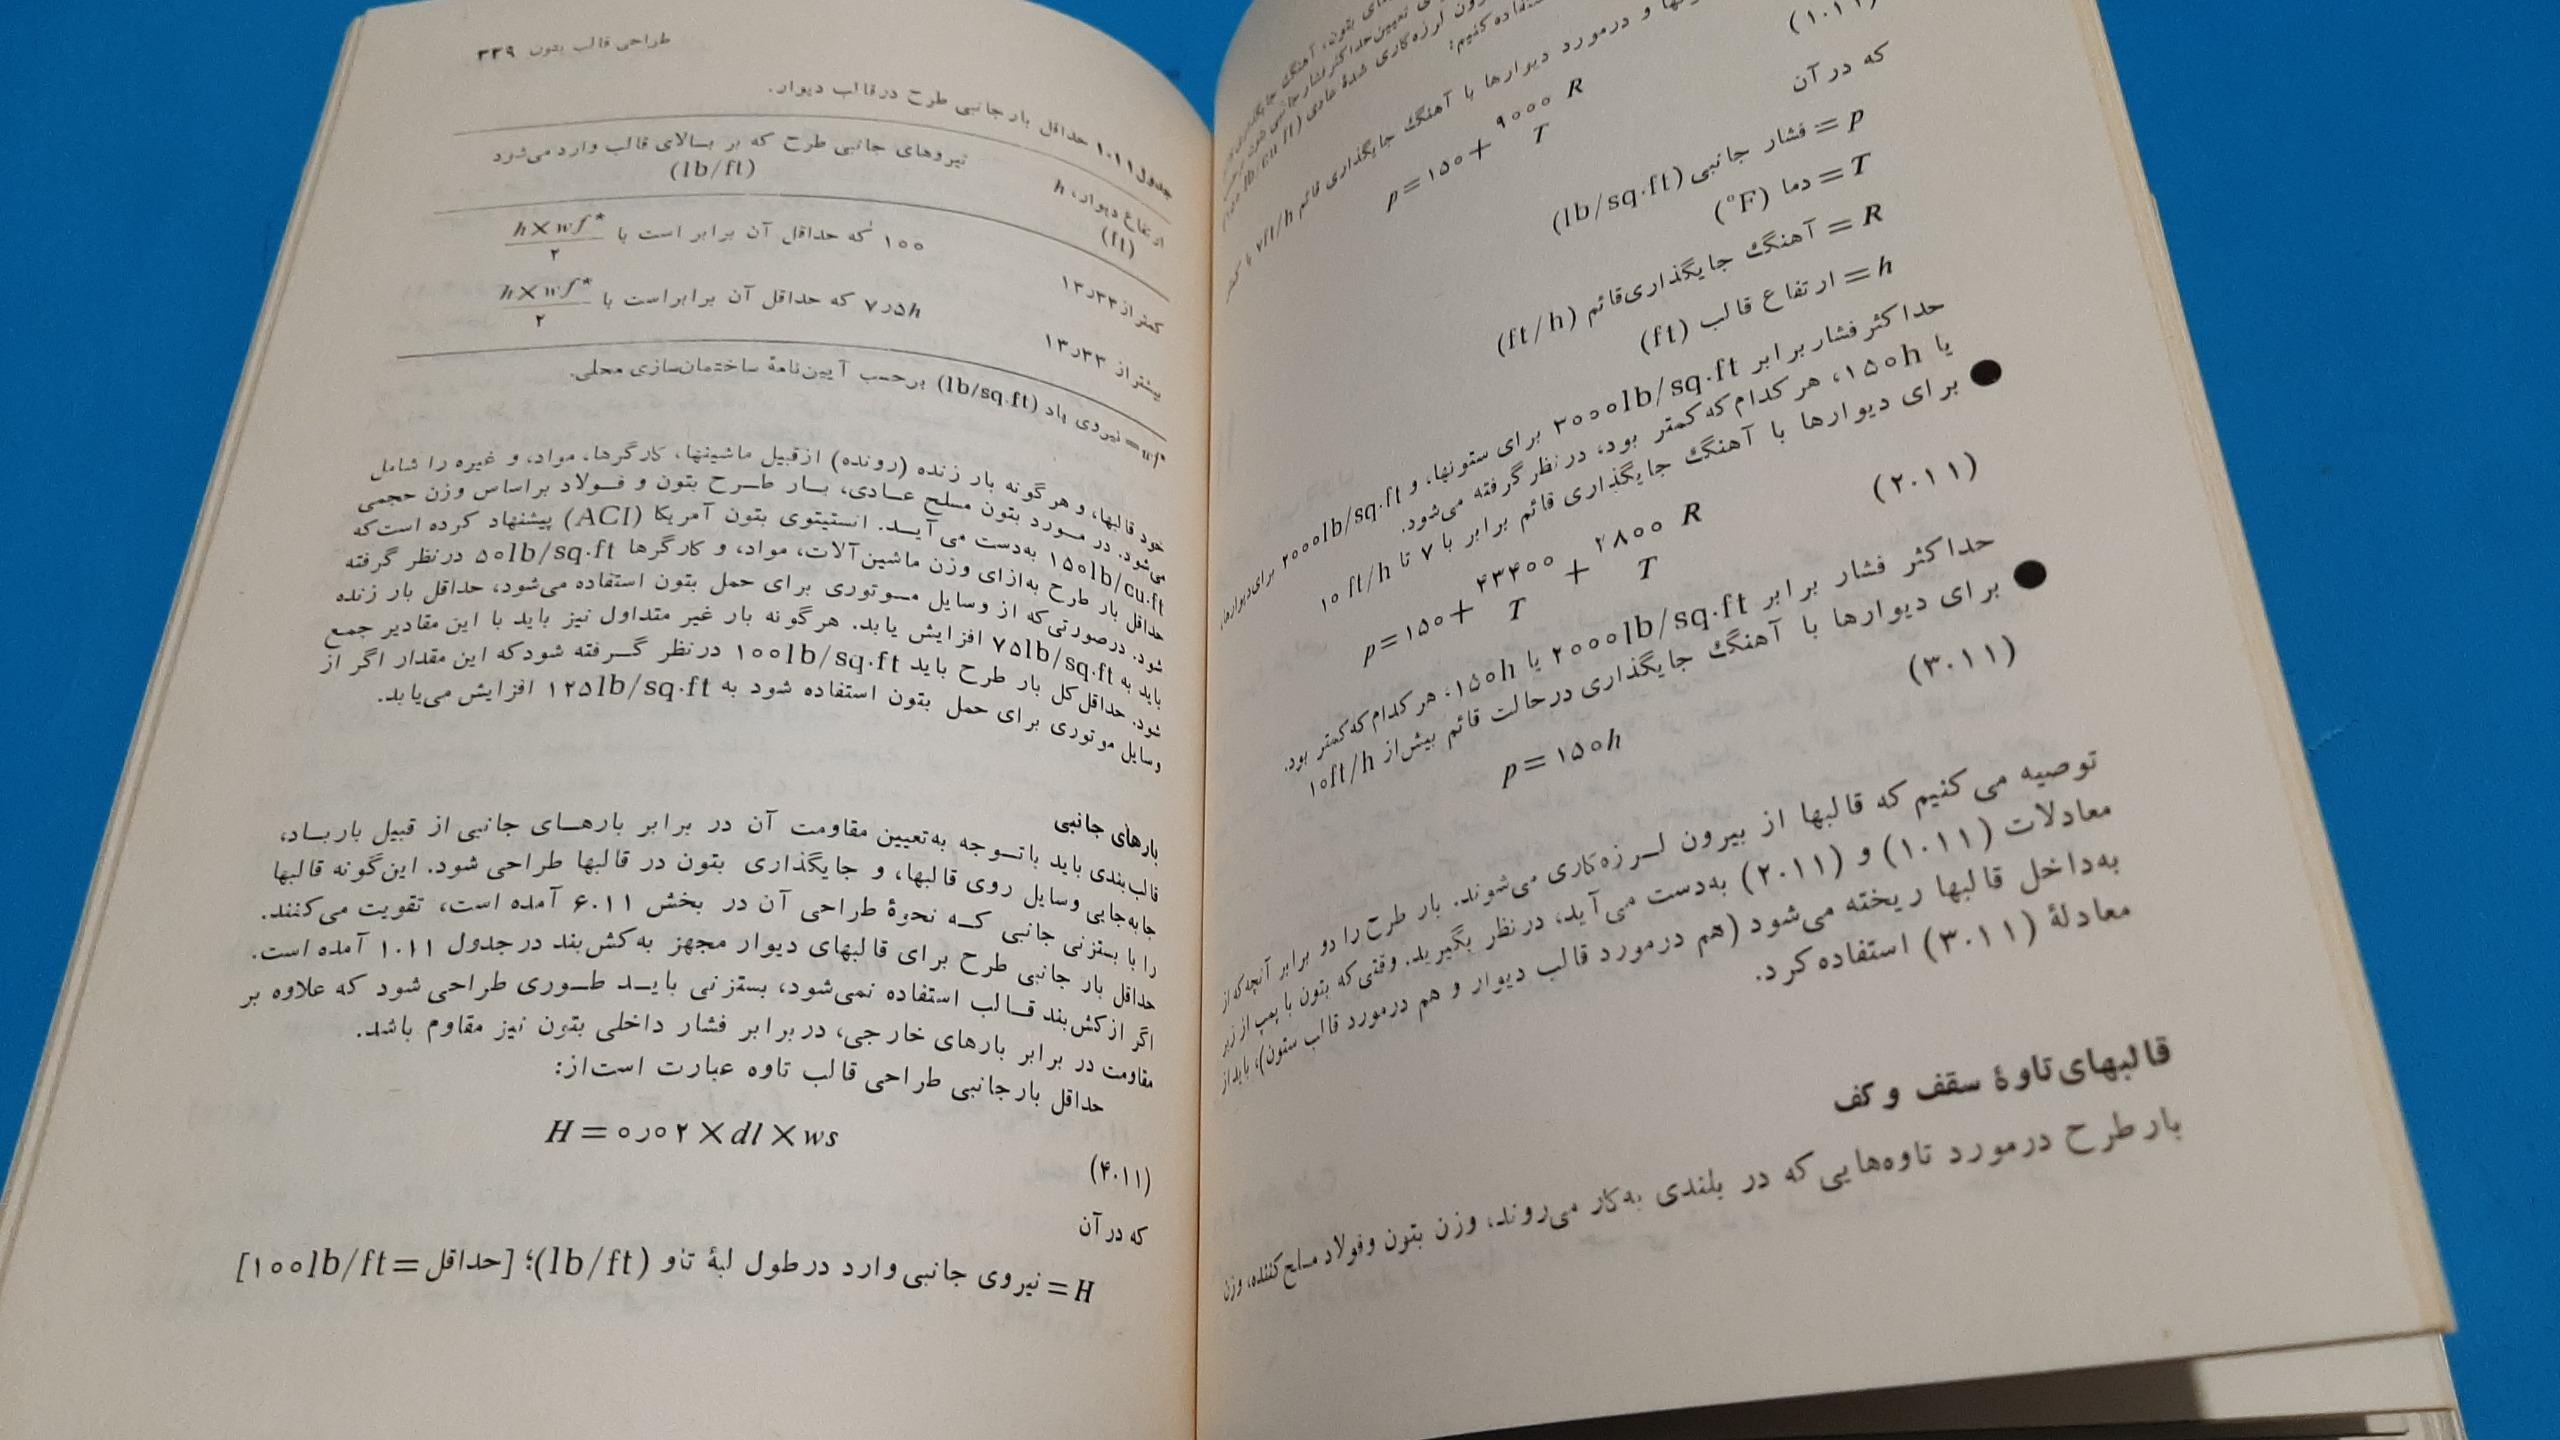 (۱.۱۱)
p=۱۵۰+ ۹۰۰۰ R
T
که در آن
p = فشار جانبی (lb/sq.ft)
T = دما (°F)
R = آهنگ جایگذاری قائم (ft/h)
h = ارتفاع قالب (ft)
حداکثر فشار برابر ۳۰۰۰lb/sq.ft برای ستونها، و ۲۰۰۰lb/sq.ft برای دیوارها،
یا ۱۵۰h، هر کدام که کمتر بود، در نظر گرفته می‌شود.
● برای دیوارها با آهنگ جایگذاری قائم برابر با ۷ تا ۱۰ ft/h
(۲.۱۱)
p=۱۵۰+ ۴۳۴۰۰ + ۲۸۰۰ R
T T
حداکثر فشار برابر ۲۰۰۰lb/sq.ft یا ۱۵۰h، هر کدام که کمتر بود.
● برای دیوارها با آهنگ جایگذاری در حالت قائم بیش از ۱۰ft/h
(۳.۱۱)
p=۱۵۰h
توصیه می کنیم که قالبها از بیرون لرزه‌کاری می‌شوند. بار طرح را دو برابر آنچه که از
معادلات (۱.۱۱) و (۲.۱۱) به‌دست می‌آید، در نظر بگیرید. وقتی که بتون با پمپ از زیر
به‌داخل قالبها ریخته می‌شود (هم در مورد قالب دیوار و هم در مورد قالب ستون)، باید از
معادلهٔ (۳.۱۱) استفاده کرد.
قالبهای تاوهٔ سقف و کف
بار طرح در مورد تاوه‌هایی که در بلندی به‌کار می‌روند، وزن بتون و فولاد مسلح کننده، وزن
طراحی قالب بتون ۳۳۹
جدول ۱.۱۱ حداقل بار جانبی طرح در قالب دیوار.
ارتفاع دیوار، h نیروهای جانبی طرح که بر بالای قالب وارد می‌شود
(ft) (lb/ft)
کمتر از ۱۳ر۳۳ ۱۰۰ که حداقل آن برابر است با h×wf*
۲
بیشتر از ۱۳ر۳۳ ۷ر۵h که حداقل آن برابر است با h×wf*
۲
wf* = نیروی باد (lb/sq.ft) برحسب آیین‌نامهٔ ساختمان‌سازی محلی.
خود قالبها، و هر گونه بار زنده (رونده) از قبیل ماشینها، کارگرها، مواد، و غیره را شامل
می‌شود. در مورد بتون مسلح عادی، بار طرح بتون و فولاد براساس وزن حجمی
۱۵۰lb/cu.ft به‌دست می آید. انستیتوی بتون آمریکا (ACI) پیشنهاد کرده است که
حداقل بار طرح به‌ازای وزن ماشین‌آلات، مواد، و کارگرها ۵۰lb/sq.ft در نظر گرفته
شود. درصورتی که از وسایل موتوری برای حمل بتون استفاده می‌شود، حداقل بار زنده
باید به ۷۵lb/sq.ft افزایش یابد. هرگونه بار غیر متداول نیز باید با این مقادیر جمع
شود. حداقل کل بار طرح باید ۱۰۰lb/sq.ft در نظر گرفته شود که این مقدار اگر از
وسایل موتوری برای حمل بتون استفاده شود به ۱۲۵lb/sq.ft افزایش می‌یابد.
بارهای جانبی
قالب‌بندی باید با توجه به‌تعیین مقاومت آن در برابر بارهای جانبی از قبیل بار باد،
جابه‌جایی وسایل روی قالبها، و جایگذاری بتون در قالبها طراحی شود. این‌گونه قالبها
را با بستزنی جانبی که نحوهٔ طراحی آن در بخش ۶.۱۱ آمده است، تقویت می‌کنند.
حداقل بار جانبی طرح برای قالبهای دیوار مجهز به کش‌بند در جدول ۱.۱۱ آمده است.
اگر از کش‌بند قالب استفاده نمی‌شود، بستزنی باید طوری طراحی شود که علاوه بر
مقاومت در برابر بارهای خارجی، در برابر فشار داخلی بتون نیز مقاوم باشد.
حداقل بار جانبی طراحی قالب تاوه عبارت است از:
H = ۰ر۰۲ × dl × ws
(۴.۱۱)
که در آن
H = نیروی جانبی وارد در طول لبهٔ تاو (lb/ft)؛ [حداقل = ۱۰۰lb/ft]